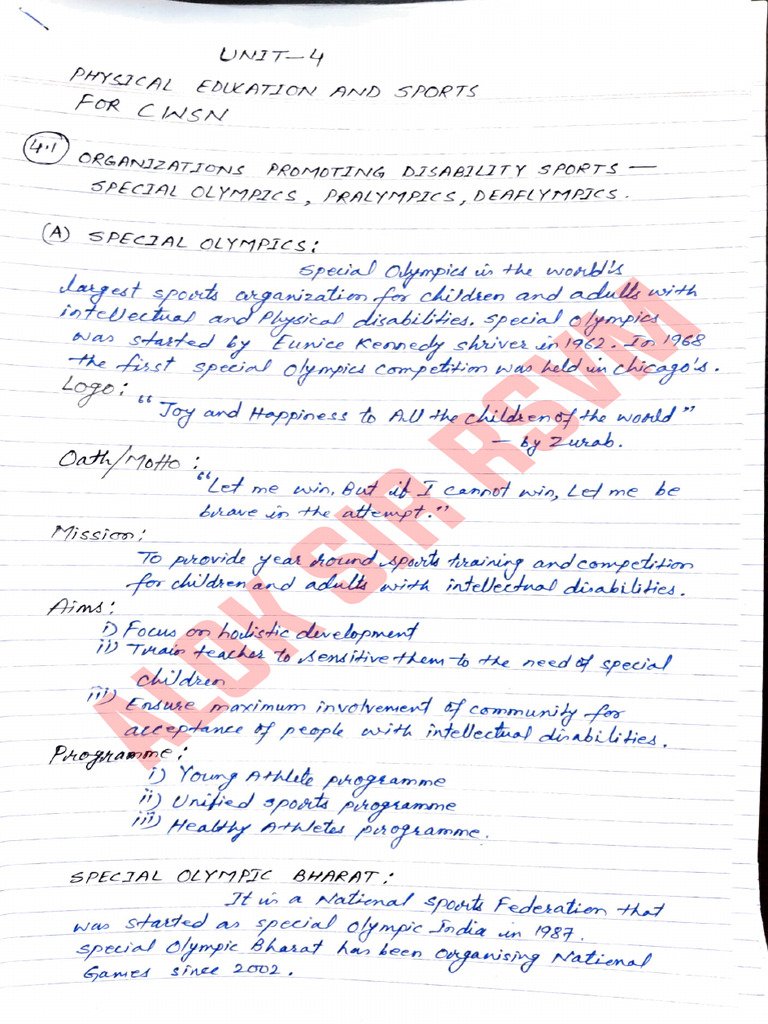 UNIT-4
PHYSICAL EDUCATION AND SPORTS
FOR CWSN
4.1 ORGANIZATIONS PROMOTING DISABILITY SPORTS —
SPECIAL OLYMPICS, PRALYMPICS, DEAFLYMPICS.
(A) SPECIAL OLYMPICS:
Special Olympics is the world's
largest sports organization for children and adults with
intellectual and Physical disabilities. Special Olympics
was started by Eunice Kennedy shriver in 1962. In 1968
the first special Olympics competition was held in chicago's.
Logo:
"Joy and Happiness to All the children of the world"
— by Zurab.
Oath/Motto:
"Let me win. But if I cannot win, Let me be
brave in the attempt."
Mission:
To provide year round sports training and competition
for children and adults with intellectual disabilities.
Aims:
i) Focus on holistic development
ii) Train teacher to sensitive them to the need of special
children
iii) Ensure maximum involvement of community for
acceptance of people with intellectual disabilities.
Programme:
i) Young Athlete programme
ii) Unified sports programme
iii) Healthy Athletes programme.
SPECIAL OLYMPIC BHARAT:
It is a National sports Federation that
was started as special Olympic India in 1987.
special Olympic Bharat has been organising National
Games since 2002.
ALOK SIR RSVM